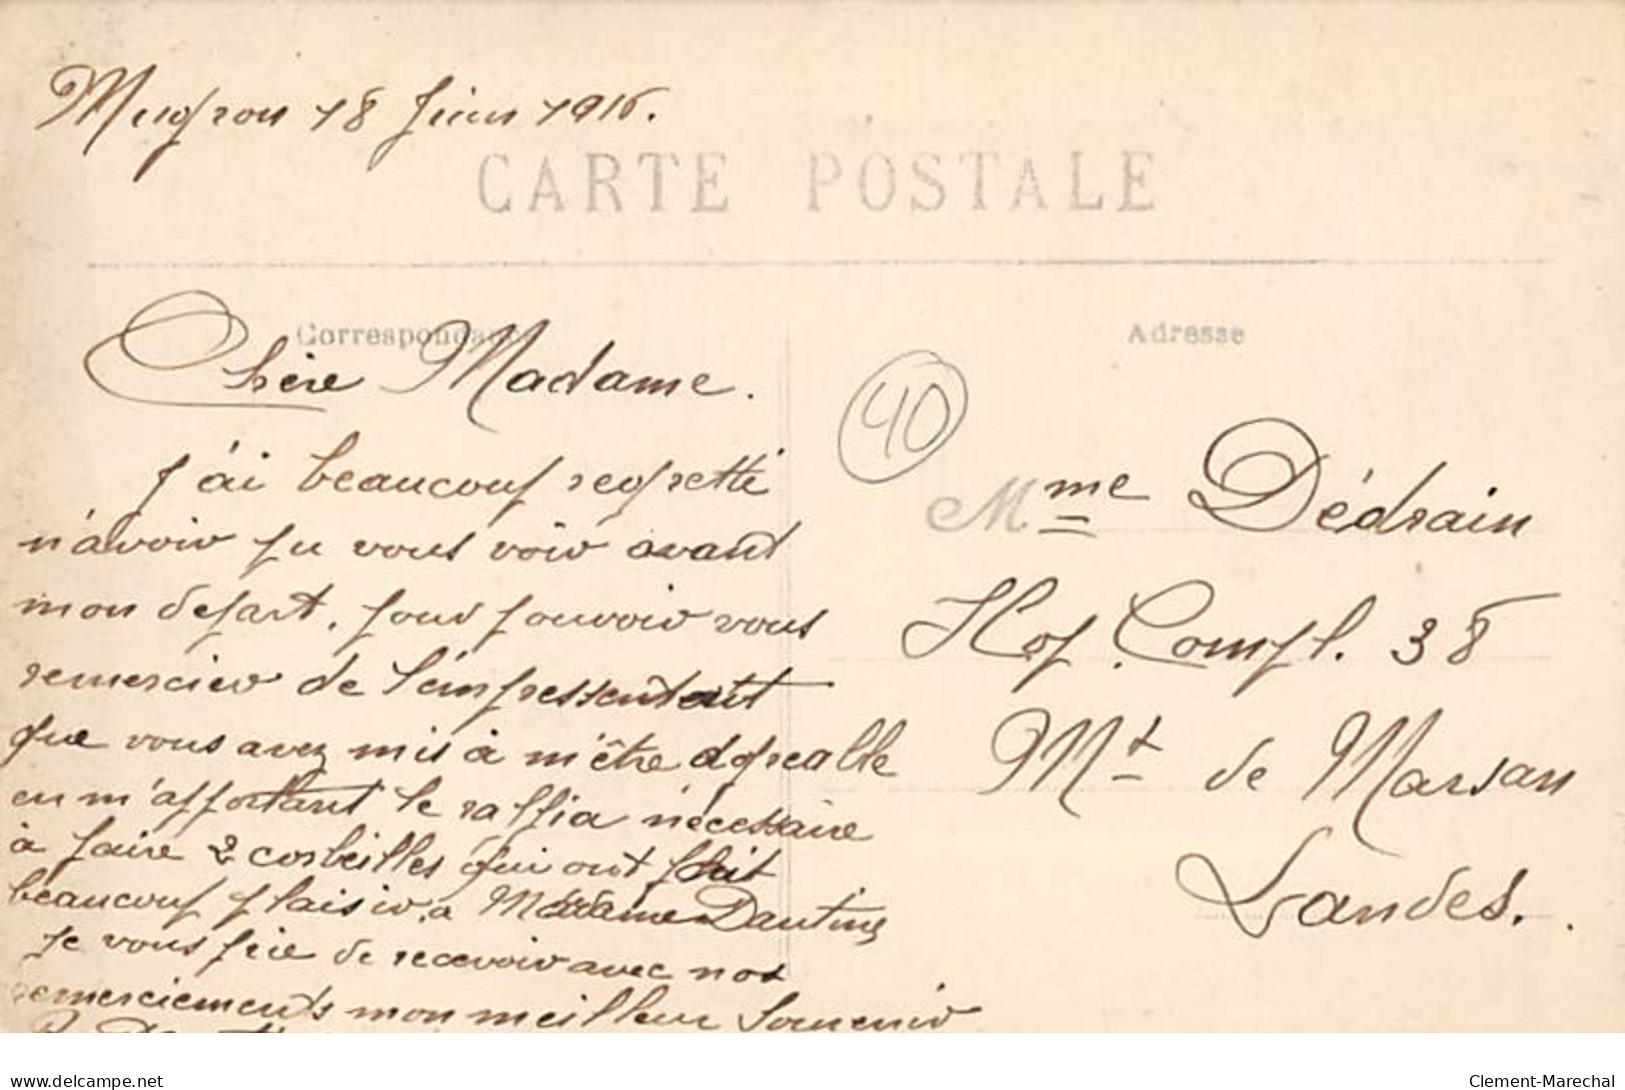 Mugron 18 Juin 1916.
CARTE POSTALE
Correspondance
Adresse
Chère Madame.
J'ai beaucoup regretté
n'avoir pu vous voir avant
mon depart, pour pouvoir vous
remercier de l'empressement
que vous avez mis à m'être agreable
en m'apportant le raffia nécessaire
à faire 2 corbeilles qui ont fait
beaucoup plaisir, a Madame Dautins
Je vous prie de recevoir avec nos
remerciements mon meilleur Souvenir
40
Mme Dédrain
Hop. Compl. 38
Mt de Marsan
Landes.
delcampe.net
Clement-Marechal